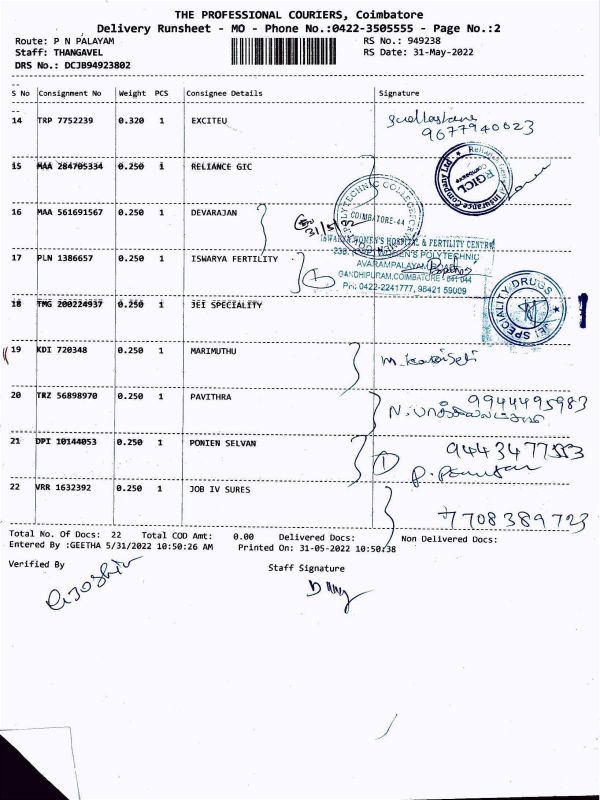 THE PROFESSIONAL COURIERS, Coimbatore
Delivery Runsheet - MO - Phone No.:0422-3505555 - Page No.:2
Route: P N PALAYAM RS No.: 949238
Staff: THANGAVEL RS Date: 31-May-2022
DRS No.: DCJB94923802
S No Consignment No Weight PCS Consignee Details Signature
14 TRP 7752239 0.320 1 EXCITEU
9677940023
15 MAA 284705334 0.250 1 RELIANCE GIC
Reliance General Insurance Company Ltd. RGICL
16 MAA 561691567 0.250 1 DEVARAJAN
POLYTECHNIC COLLEGE COIMBATORE-44
31/5/22
17 PLN 1386657 0.250 1 ISWARYA FERTILITY
ISWARYA WOMEN'S HOSPITAL & FERTILITY CENTRE
WOMEN'S POLYTECHNIC
AVARAMPALAYAM ROAD
GANDHIPURAM, COIMBATORE - 641 044
Ph: 0422-2241777, 98421 59009
18 TMG 200224937 0.250 1 JEI SPECIALITY
JEI SPECIALITY DRUGS
19 KDI 720348 0.250 1 MARIMUTHU
20 TRZ 56898970 0.250 1 PAVITHRA
9944495983
21 DPI 10144053 0.250 1 PONIEN SELVAN
1
22 VRR 1632392 0.250 1 JOB IV SURES
7708389723
Total No. Of Docs: 22 Total COD Amt: 0.00 Delivered Docs: Non Delivered Docs:
Entered By :GEETHA 5/31/2022 10:50:26 AM Printed On: 31-05-2022 10:50:38
Verified By Staff Signature